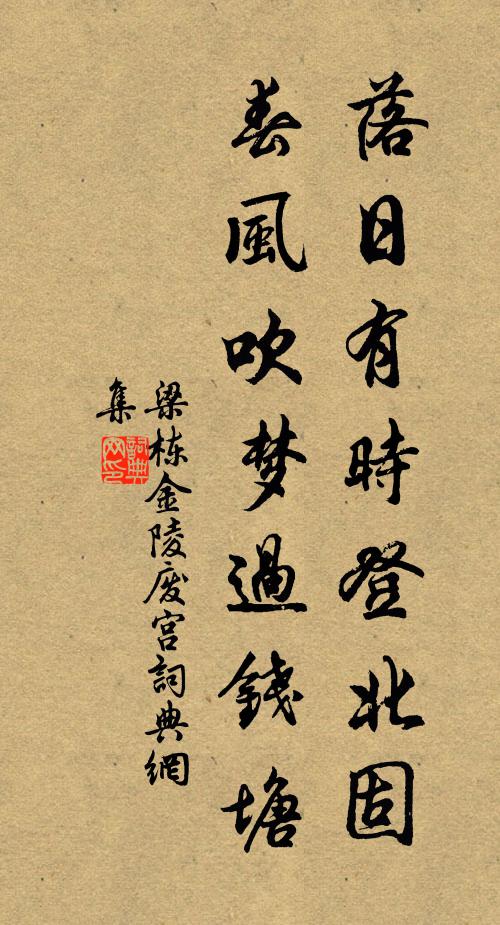 落日有時登北固
春風吹梦過錢塘
梁栋金陵废宫詞典網
集
詞典网印